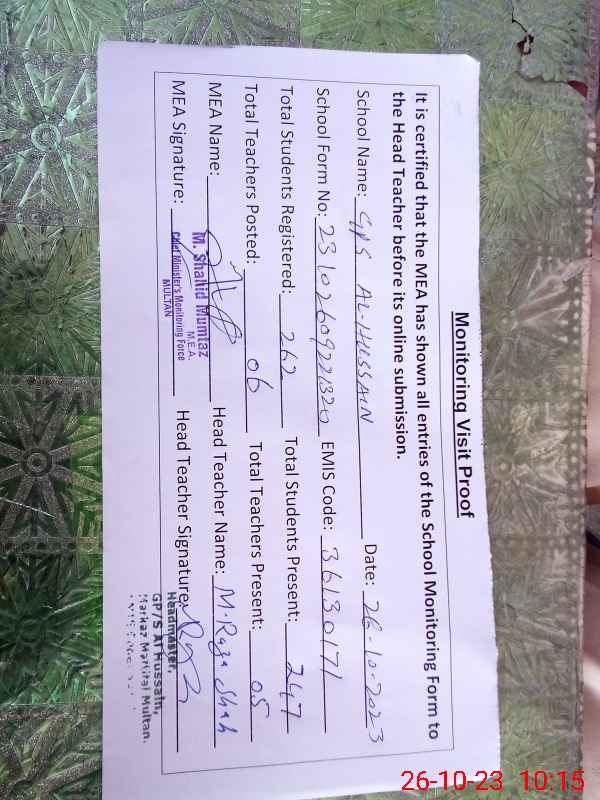 Monitoring Visit Proof
It is certified that the MEA has shown all entries of the School Monitoring Form to
the Head Teacher before its online submission.
School Name: GPS AL-HUSSAIN Date: 26-10-2023
School Form No: 23102609221320 EMIS Code: 36130171
Total Students Registered: 262 Total Students Present: 247
Total Teachers Posted: 06 Total Teachers Present: 05
MEA Name: Head Teacher Name: M. Raza Shah
M. Shahid Mumtaz
M.E.A.
MEA Signature: Head Teacher Signature:
Chief Minister's Monitoring Force
MULTAN
Headmaster,
GP/S Al Hussain,
Markaz Multan.
26-10-23 10:15